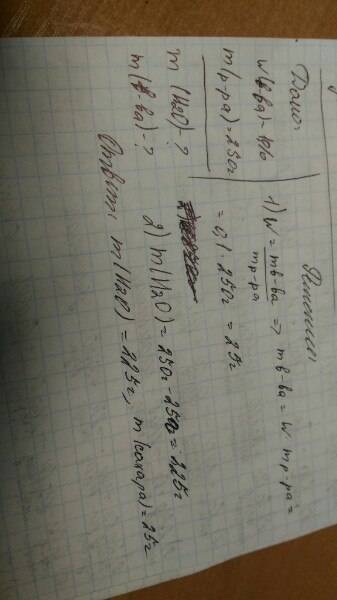 Дано:
W(в-ва) = 10%
m(р-ра) = 250г
m(H2O) - ?
m(в-ва) - ?
Решение:
1) W = mв-ва / mр-ра => mв-ва = W · mр-ра =
= 0,1 · 250г = 25г
2) m(H2O) = 250г - 25г = 225г
Ответ: m(H2O) = 225г, m(сахара) = 25г